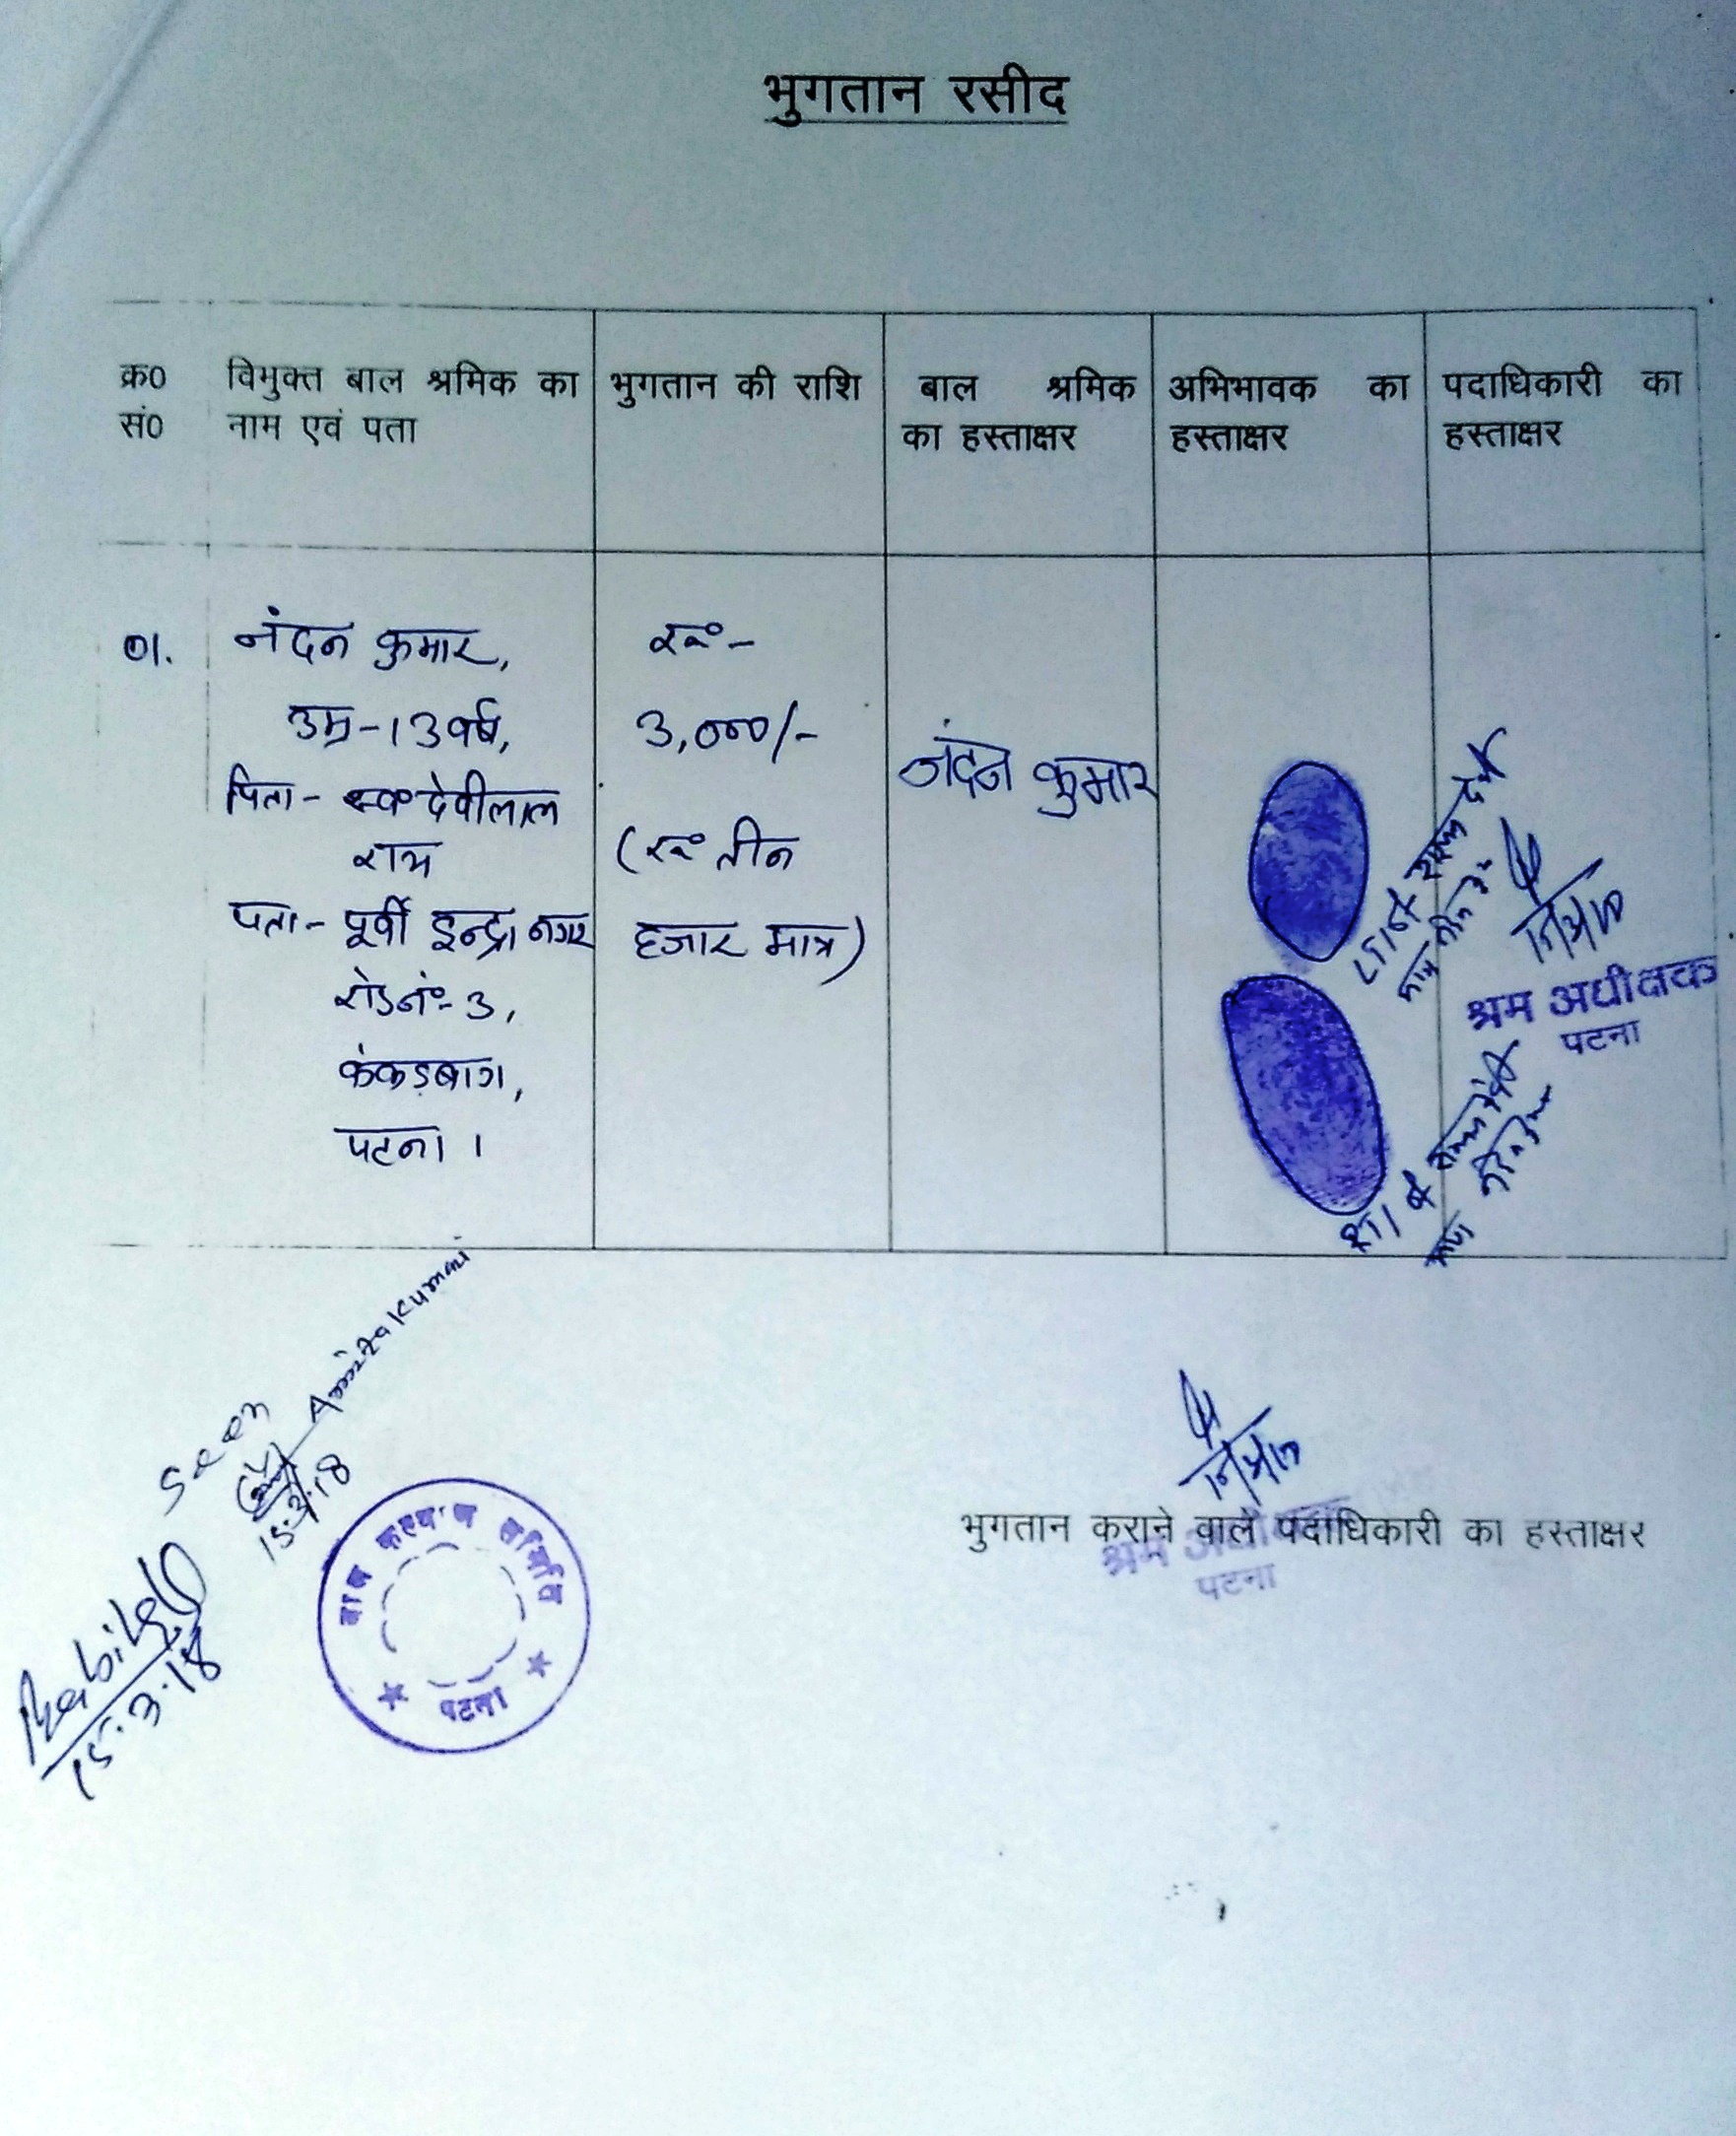 भुगतान रसीद
क्र0 सं0
विमुक्त बाल श्रमिक का
नाम एवं पता
भुगतान की राशि
बाल श्रमिक
का हस्ताक्षर
अभिभावक का
हस्ताक्षर
पदाधिकारी का
हस्ताक्षर
01.
नंदन कुमार,
उम्र-13 वर्ष,
पिता- स्व० देवीलाल
राम
पता- पूर्वी इन्द्रा नगर
रोड नं०- 3,
कंकडबाग,
पटना ।
रू०-
3,000/-
(रू० तीन
हजार मात्र)
नंदन कुमार
श्रम अधीक्षक
पटना
Seen
15.3.18
15.3.18
बाल कल्याण समिति
पटना
भुगतान कराने वाले पदाधिकारी का हस्ताक्षर
पटना